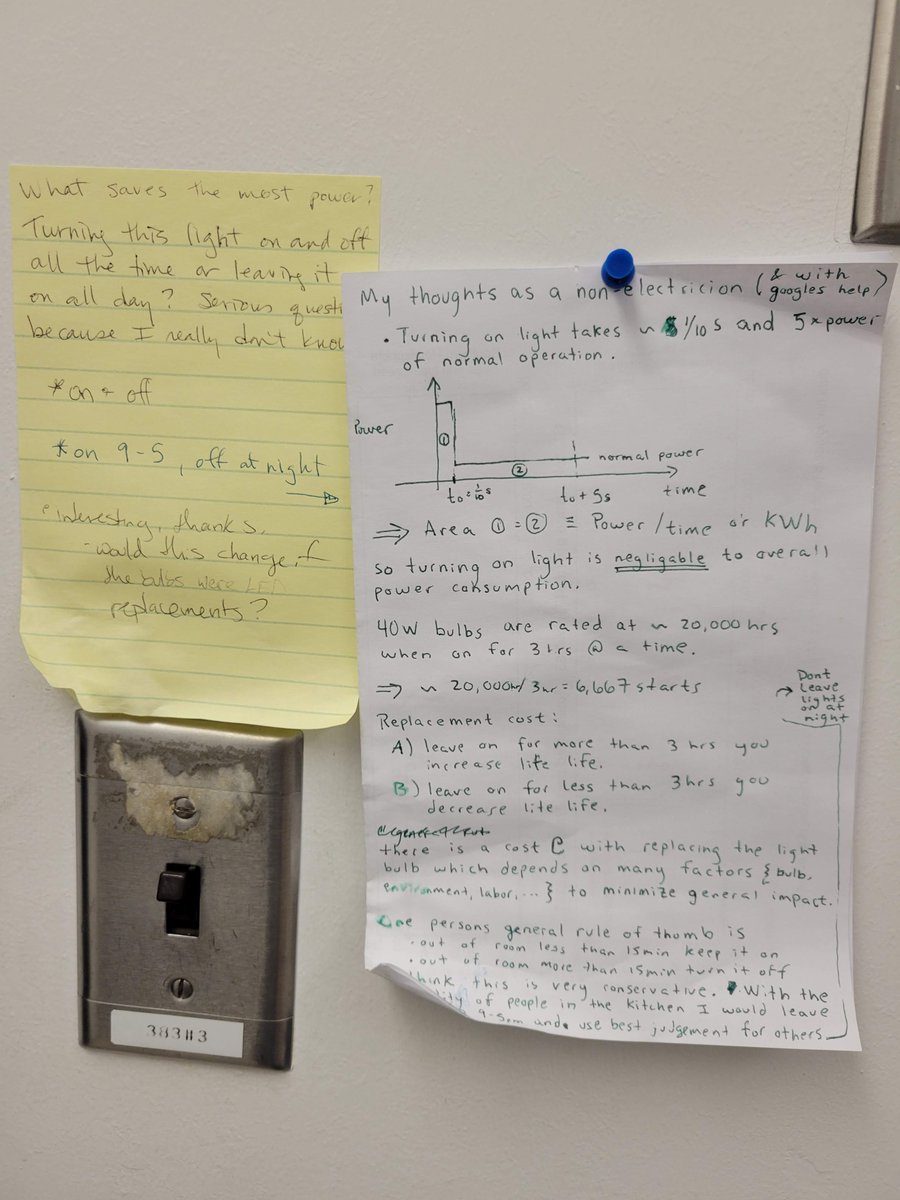 What saves the most power?
Turning this light on and off
all the time or leaving it
on all day? Serious questi
because I really don't know
* on + off
* on 9-5, off at night
"interesting, thanks.
- would this change if
the bulbs were LED
replacements?
383#3
My thoughts as a non-electricion (& with
googles help)
• Turning on light takes ~ 1/10 s and 5x power
of normal operation.
Power
①
②
normal power
t₀ = 1/10 s
t₀ + 5s
time
⇒ Area ① = ② ≡ Power/time or KWh
so turning on light is negligable to overall
power consumption.
40W bulbs are rated at ~ 20,000 hrs
when on for 3 hrs @ a time.
⇒ ~ 20,000hr/3hr = 6,667 starts
Dont
leave
lights
on at
night
Replacement cost:
A) leave on for more than 3 hrs you
increase life life.
B) leave on for less than 3hrs you
decrease lite life.
there is a cost C with replacing the light
bulb which depends on many factors { bulb,
environment, labor, ... } to minimize general impact.
One persons general rule of thumb is
• out of room less than 15min keep it on
• out of room more than 15min turn it off
think this is very conservative. With the
of people in the kitchen I would leave
9-5pm and use best judgement for others